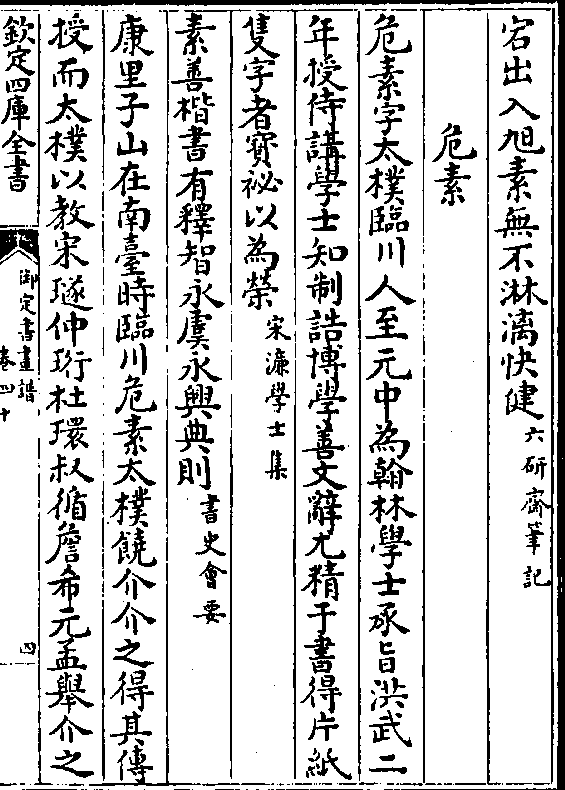 宕出入旭素無不淋漓快健六研齋筆記
危素
危素字太樸臨川人至元中為翰林學士承旨洪武二
年授侍講學士知制誥博學善文辭尤精于書得片紙
隻字者寶祕以為榮宋濂學士集
素善楷書有釋智永虞永興典則書史會要
康里子山在南臺時臨川危素太樸饒介介之得其傳
授而太樸以教宋璲仲珩杜環叔循詹希元孟舉介之
欽定四庫全書
御定書畫譜
卷四十
四